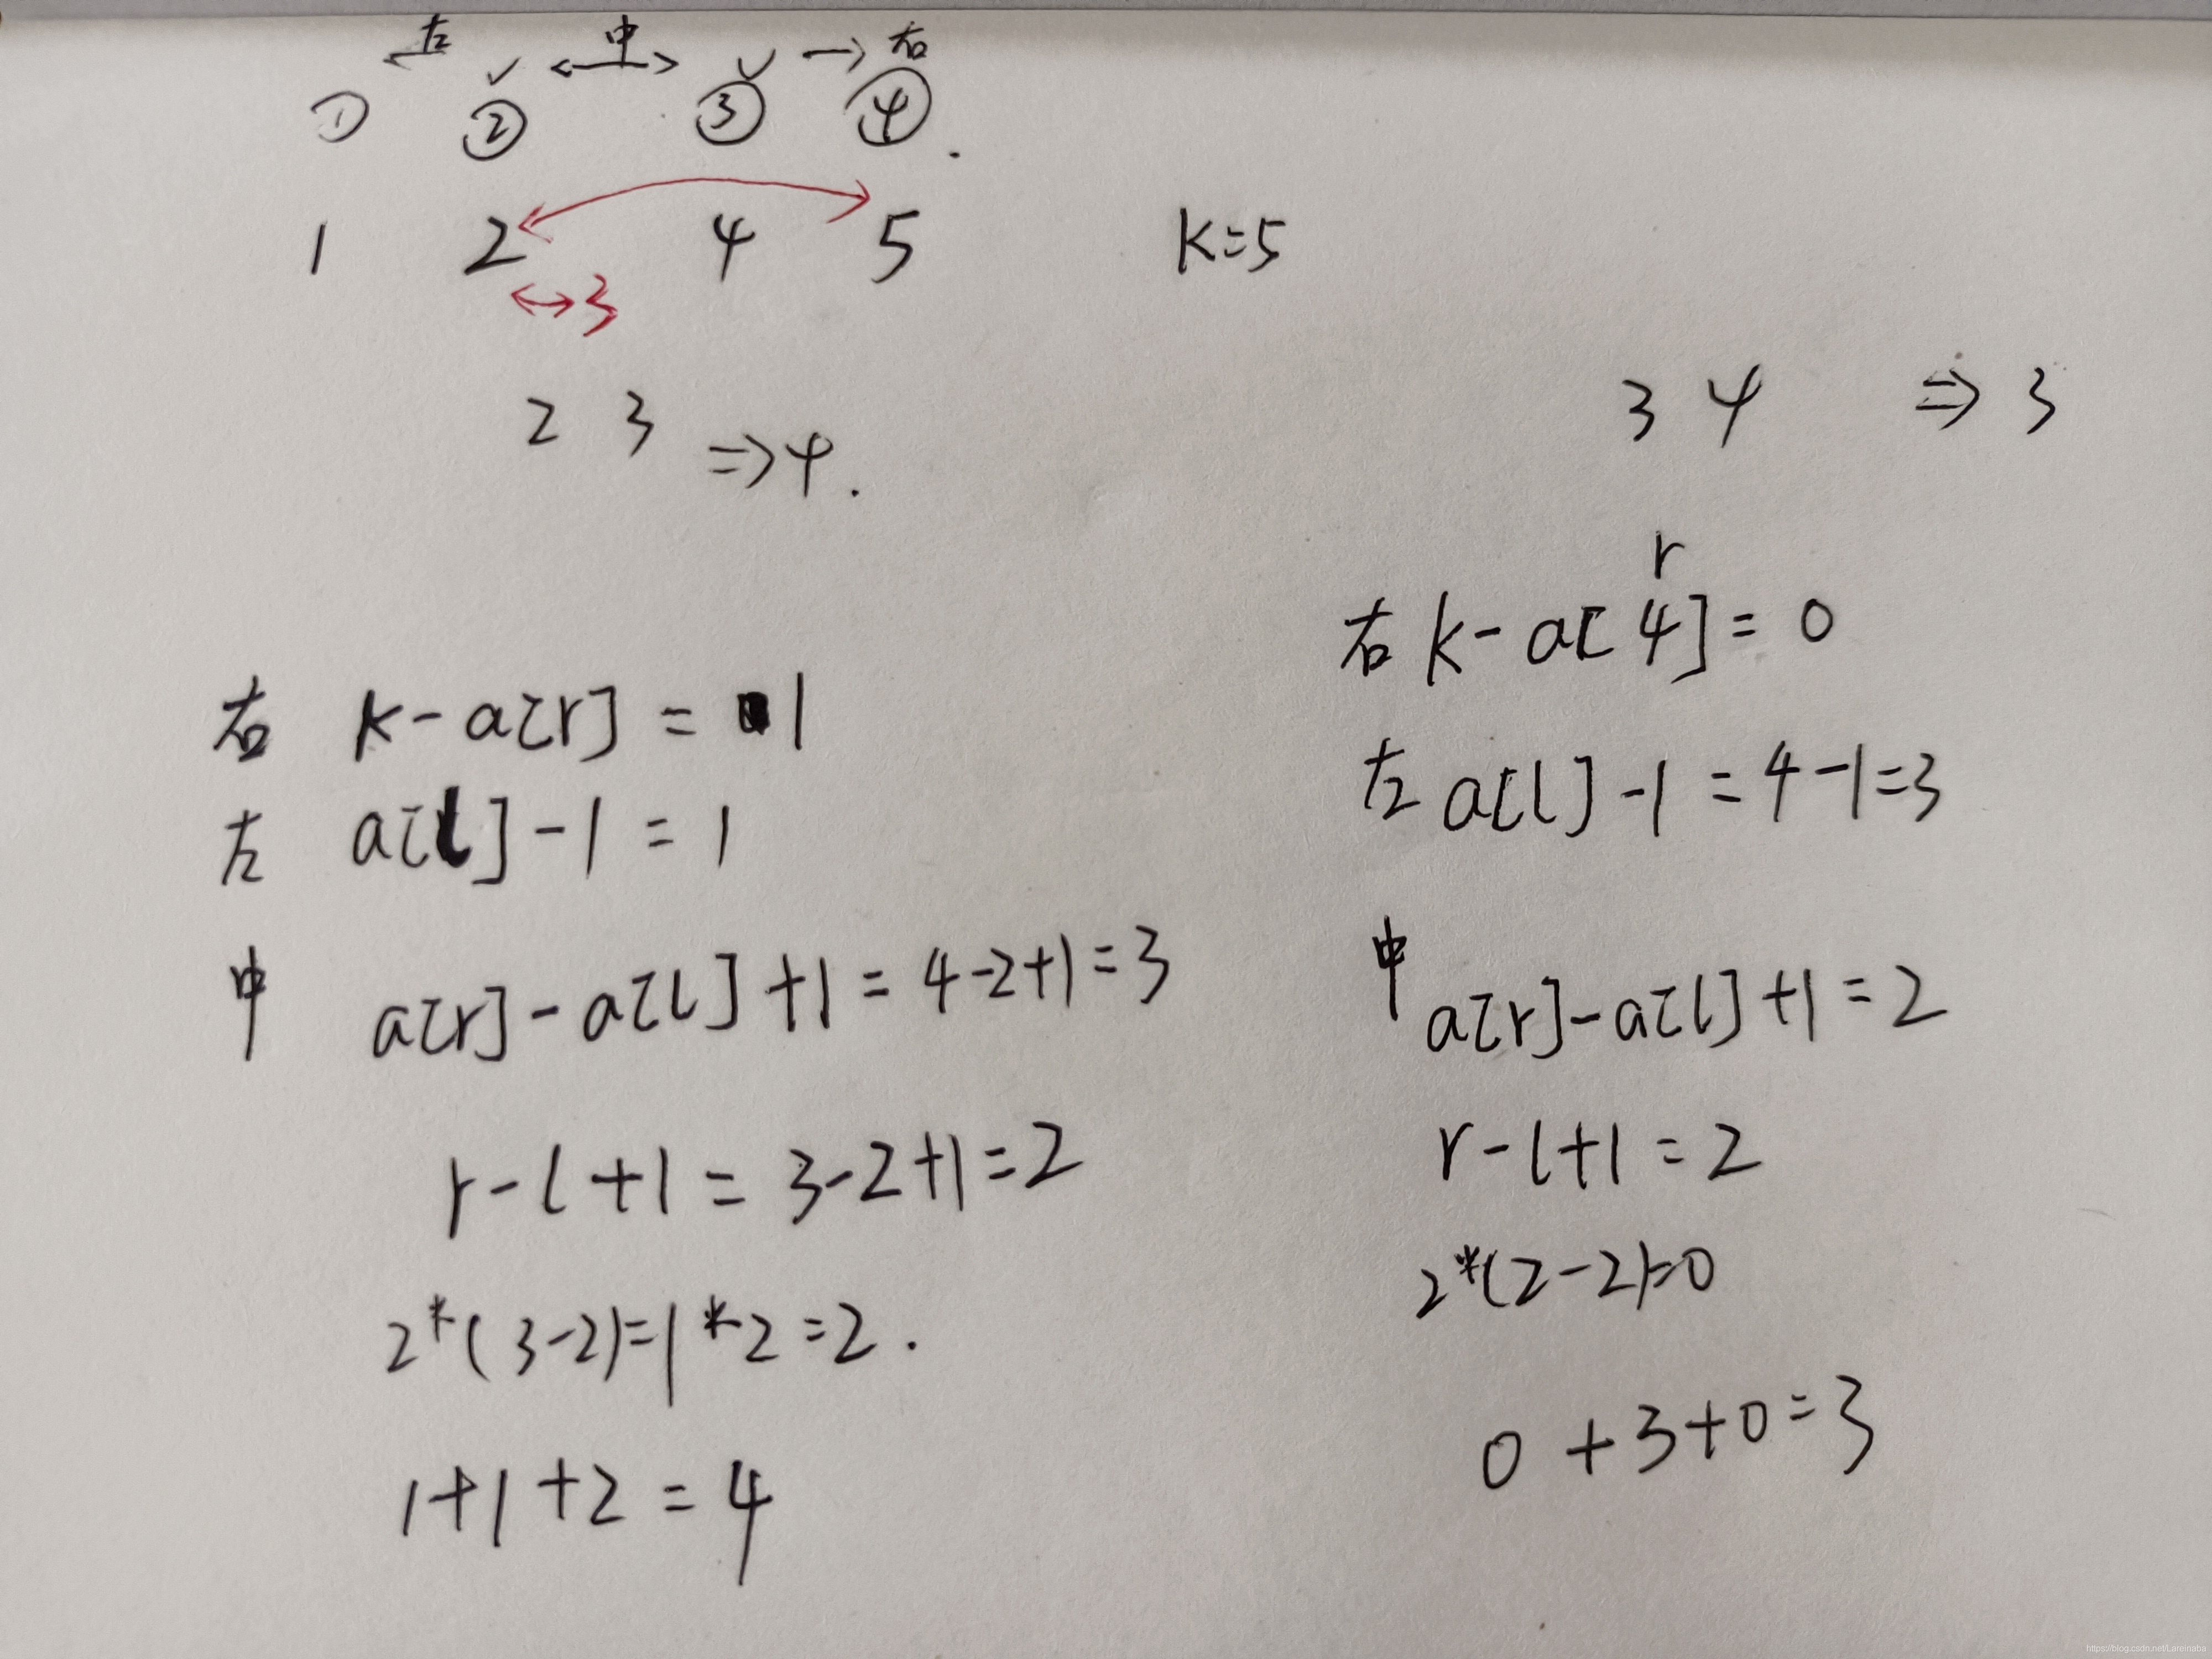 左 中 右
✓ ✓
① ② ③ ④ .
1 2 4 5 k=5
3
2 3 => 4 .
3 4 => 3
r
右 k-a[4]=0
左 a[l]-1=4-1=3
中 a[r]-a[l]+1=2
r-l+1=2
2*(2-2)=0
0+3+0=3
右 k-a[r]=1
左 a[l]-1=1
中 a[r]-a[l]+1=4-2+1=3
r-l+1=3-2+1=2
2*(3-2)=1*2=2.
1+1+2=4
https://blog.csdn.net/Lareinaba